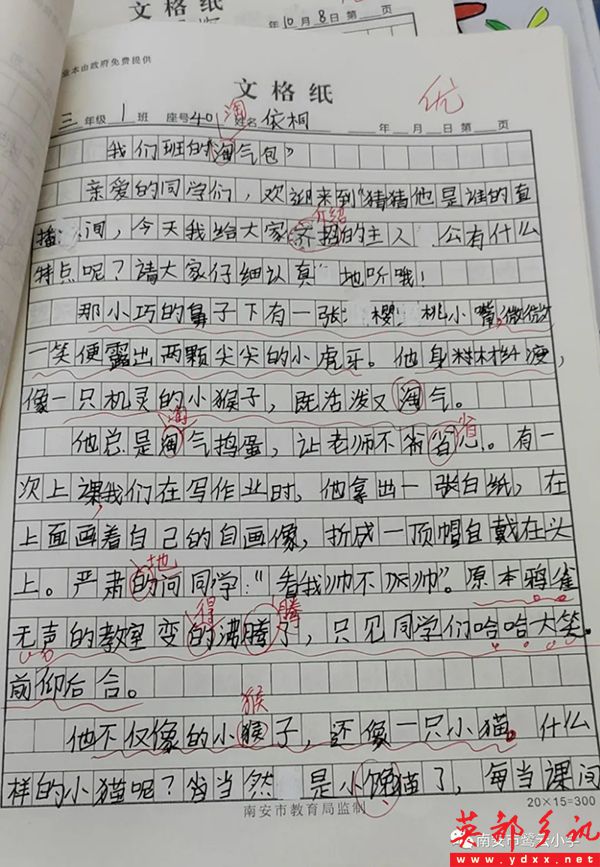 文格纸
10月8日 第 页
本由政府免费提供
文格纸
优
三年级 1班 座号40 姓名 依桐 年 月 日 第 页
淘
我们班的“淘气包》
亲爱的同学们,欢迎来到“猜猜他是谁的直
介绍
播 间,今天我给大家介招的主人 公有什么
特点呢?请大家仔细认真 地听哦!
那小巧的鼻子下有一张 樱 桃小嘴,微微
一笑便露出两颗尖尖的小虎牙。他身材
像一只机灵的小猴子,既活泼又淘气。
淘
他总是淘气捣蛋,让老师不 省 。有一
省
次上课,我们在写作业时,他拿出一张白纸,在
上面画着自己的自画像,折成一顶帽自戴在头
地
上。严肃的问同学:“看我帅不帅”。原本鸦雀
得 腾
无声的教室变的沸腾了,只见同学们哈哈大笑。
前仰后合。
猴
他不仅像的小猴子,还像一只小猫。什么
样的小猫呢?当当然 是小馋猫了,每当课间
南安市教育局监制
20×15=300
南安市鹭云小学
英都乡讯
www.ydxx.net